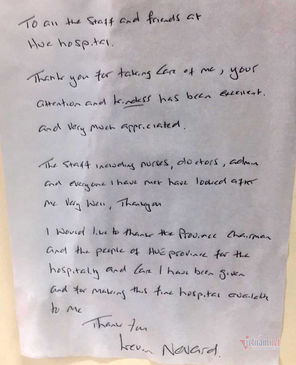 To all the Staff and friends at
Hue hospital.
Thank you for taking Care of me, your
attention and kindess has been excellent.
and very much appriciated.
The Staff including nurses, doctors, admin
and everyone I have met have looked after
me very well, Thankyou
I would like to thank the Province Chairman
and the people of HUE province for the
hospitality and Care I have been given
and for making this fine hospital available
to me
Thank You
vietnamnet